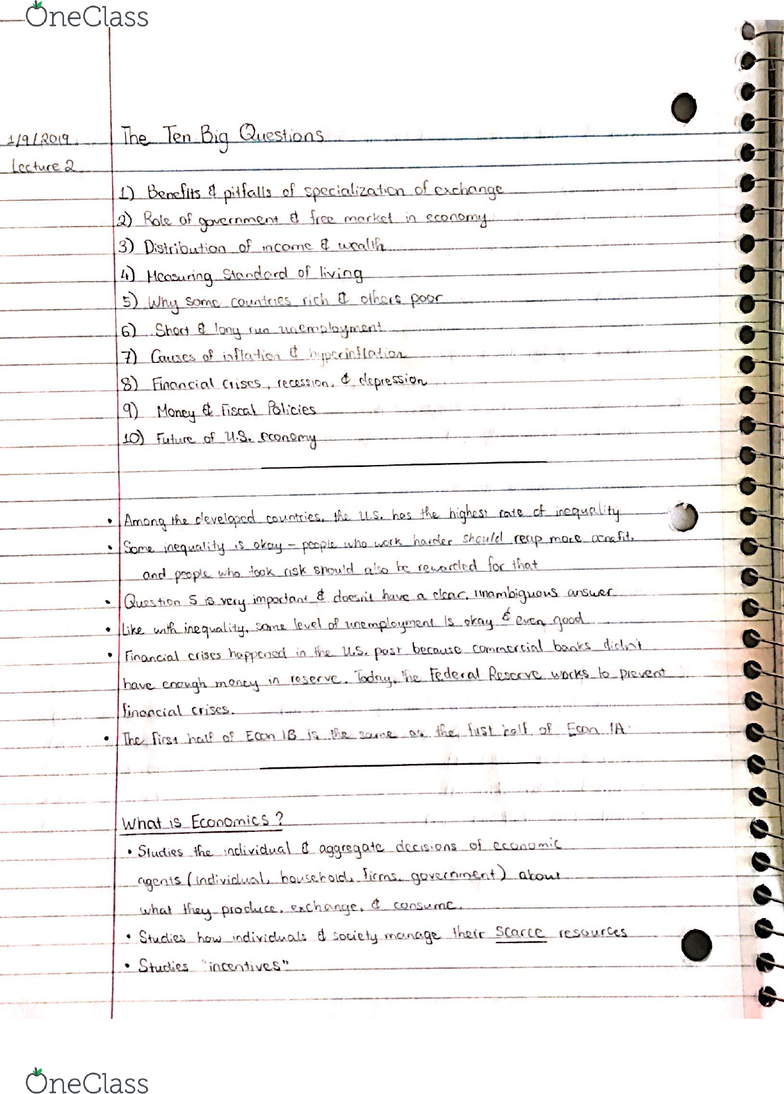 OneClass
1/9/2019
Lecture 2
The Ten Big Questions
1) Benefits & pitfalls of specialization of exchange
2) Role of government & free market in economy
3) Distribution of income & wealth
4) Measuring Standard of living
5) Why some countries rich & others poor
6) Short & long run unemployment
7) Causes of inflation & hyperinflation
8) Financial crises, recession, & depression
9) Money & Fiscal Policies
10) Future of U.S. economy
• Among the developed countries, the U.S. has the highest rate of inequality
• Some inequality is okay – people who work harder should reap more benefit,
and people who took risk should also be rewarded for that
• Question 5 is very important & doesn't have a clear, unambiguous answer
• Like with inequality, some level of unemployment is okay & even good
• Financial crises happened in the U.S. past because commercial banks didn't
have enough money in reserve. Today, the Federal Reserve works to prevent
financial crises.
• The first half of Econ 1B is the same as the first half of Econ 1A.
What is Economics?
• Studies the individual & aggregate decisions of economic
agents (individual, household, firms, government) about
what they produce, exchange, & consume.
• Studies how individuals & society manage their scarce resources
• Studies "incentives"
OneClass